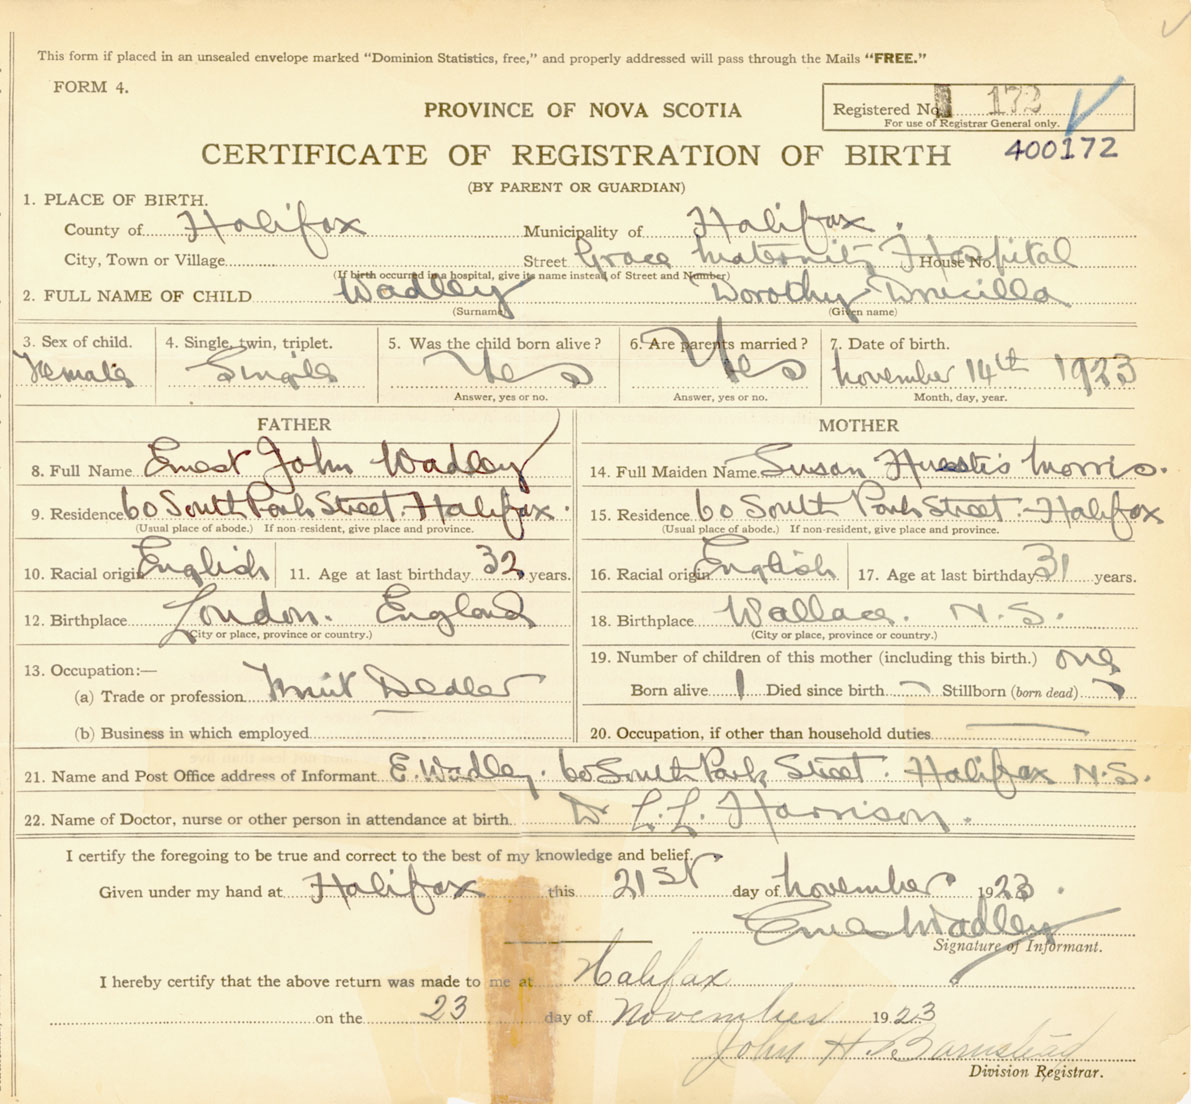 This form if placed in an unsealed envelope marked “Dominion Statistics, free,” and properly addressed will pass through the Mails “FREE.”
FORM 4.
PROVINCE OF NOVA SCOTIA
Registered No. 172
For use of Registrar General only.
CERTIFICATE OF REGISTRATION OF BIRTH
400172
(BY PARENT OR GUARDIAN)
1. PLACE OF BIRTH.
County of Halifax Municipality of Halifax.
City, Town or Village Street Grace Maternity Hospital House No.
(If birth occurred in a hospital, give its name instead of Street and Number)
2. FULL NAME OF CHILD Wadley Dorothy Drucilla
(Surname) (Given name)
3. Sex of child. 4. Single, twin, triplet. 5. Was the child born alive? 6. Are parents married? 7. Date of birth.
Female Single Yes Yes November 14th 1923
Answer, yes or no. Answer, yes or no. Month, day, year.
FATHER MOTHER
8. Full Name Ernest John Wadley 14. Full Maiden Name Susan Huestis Morris.
9. Residence 60 South Park Street. Halifax. 15. Residence 60 South Park Street.-Halifax
(Usual place of abode.) If non-resident, give place and province. (Usual place of abode.) If non-resident, give place and province.
10. Racial origin English 11. Age at last birthday 32 years. 16. Racial origin English 17. Age at last birthday 31 years.
12. Birthplace London. England 18. Birthplace Wallace. N.S.
(City or place, province or country.) (City or place, province or country.)
13. Occupation:— 19. Number of children of this mother (including this birth.) one
(a) Trade or profession Dealer Born alive 1 Died since birth — Stillborn (born dead)
(b) Business in which employed 20. Occupation, if other than household duties
21. Name and Post Office address of Informant E. Wadley. 60 South Park Street. Halifax N.S.
22. Name of Doctor, nurse or other person in attendance at birth. Dr L.L. Harrison.
I certify the foregoing to be true and correct to the best of my knowledge and belief.
Given under my hand at Halifax this 21st day of November 1923.
Wadley
Signature of Informant.
I hereby certify that the above return was made to me at Halifax
on the 23 day of November 1923
John H Barnstead
Division Registrar.